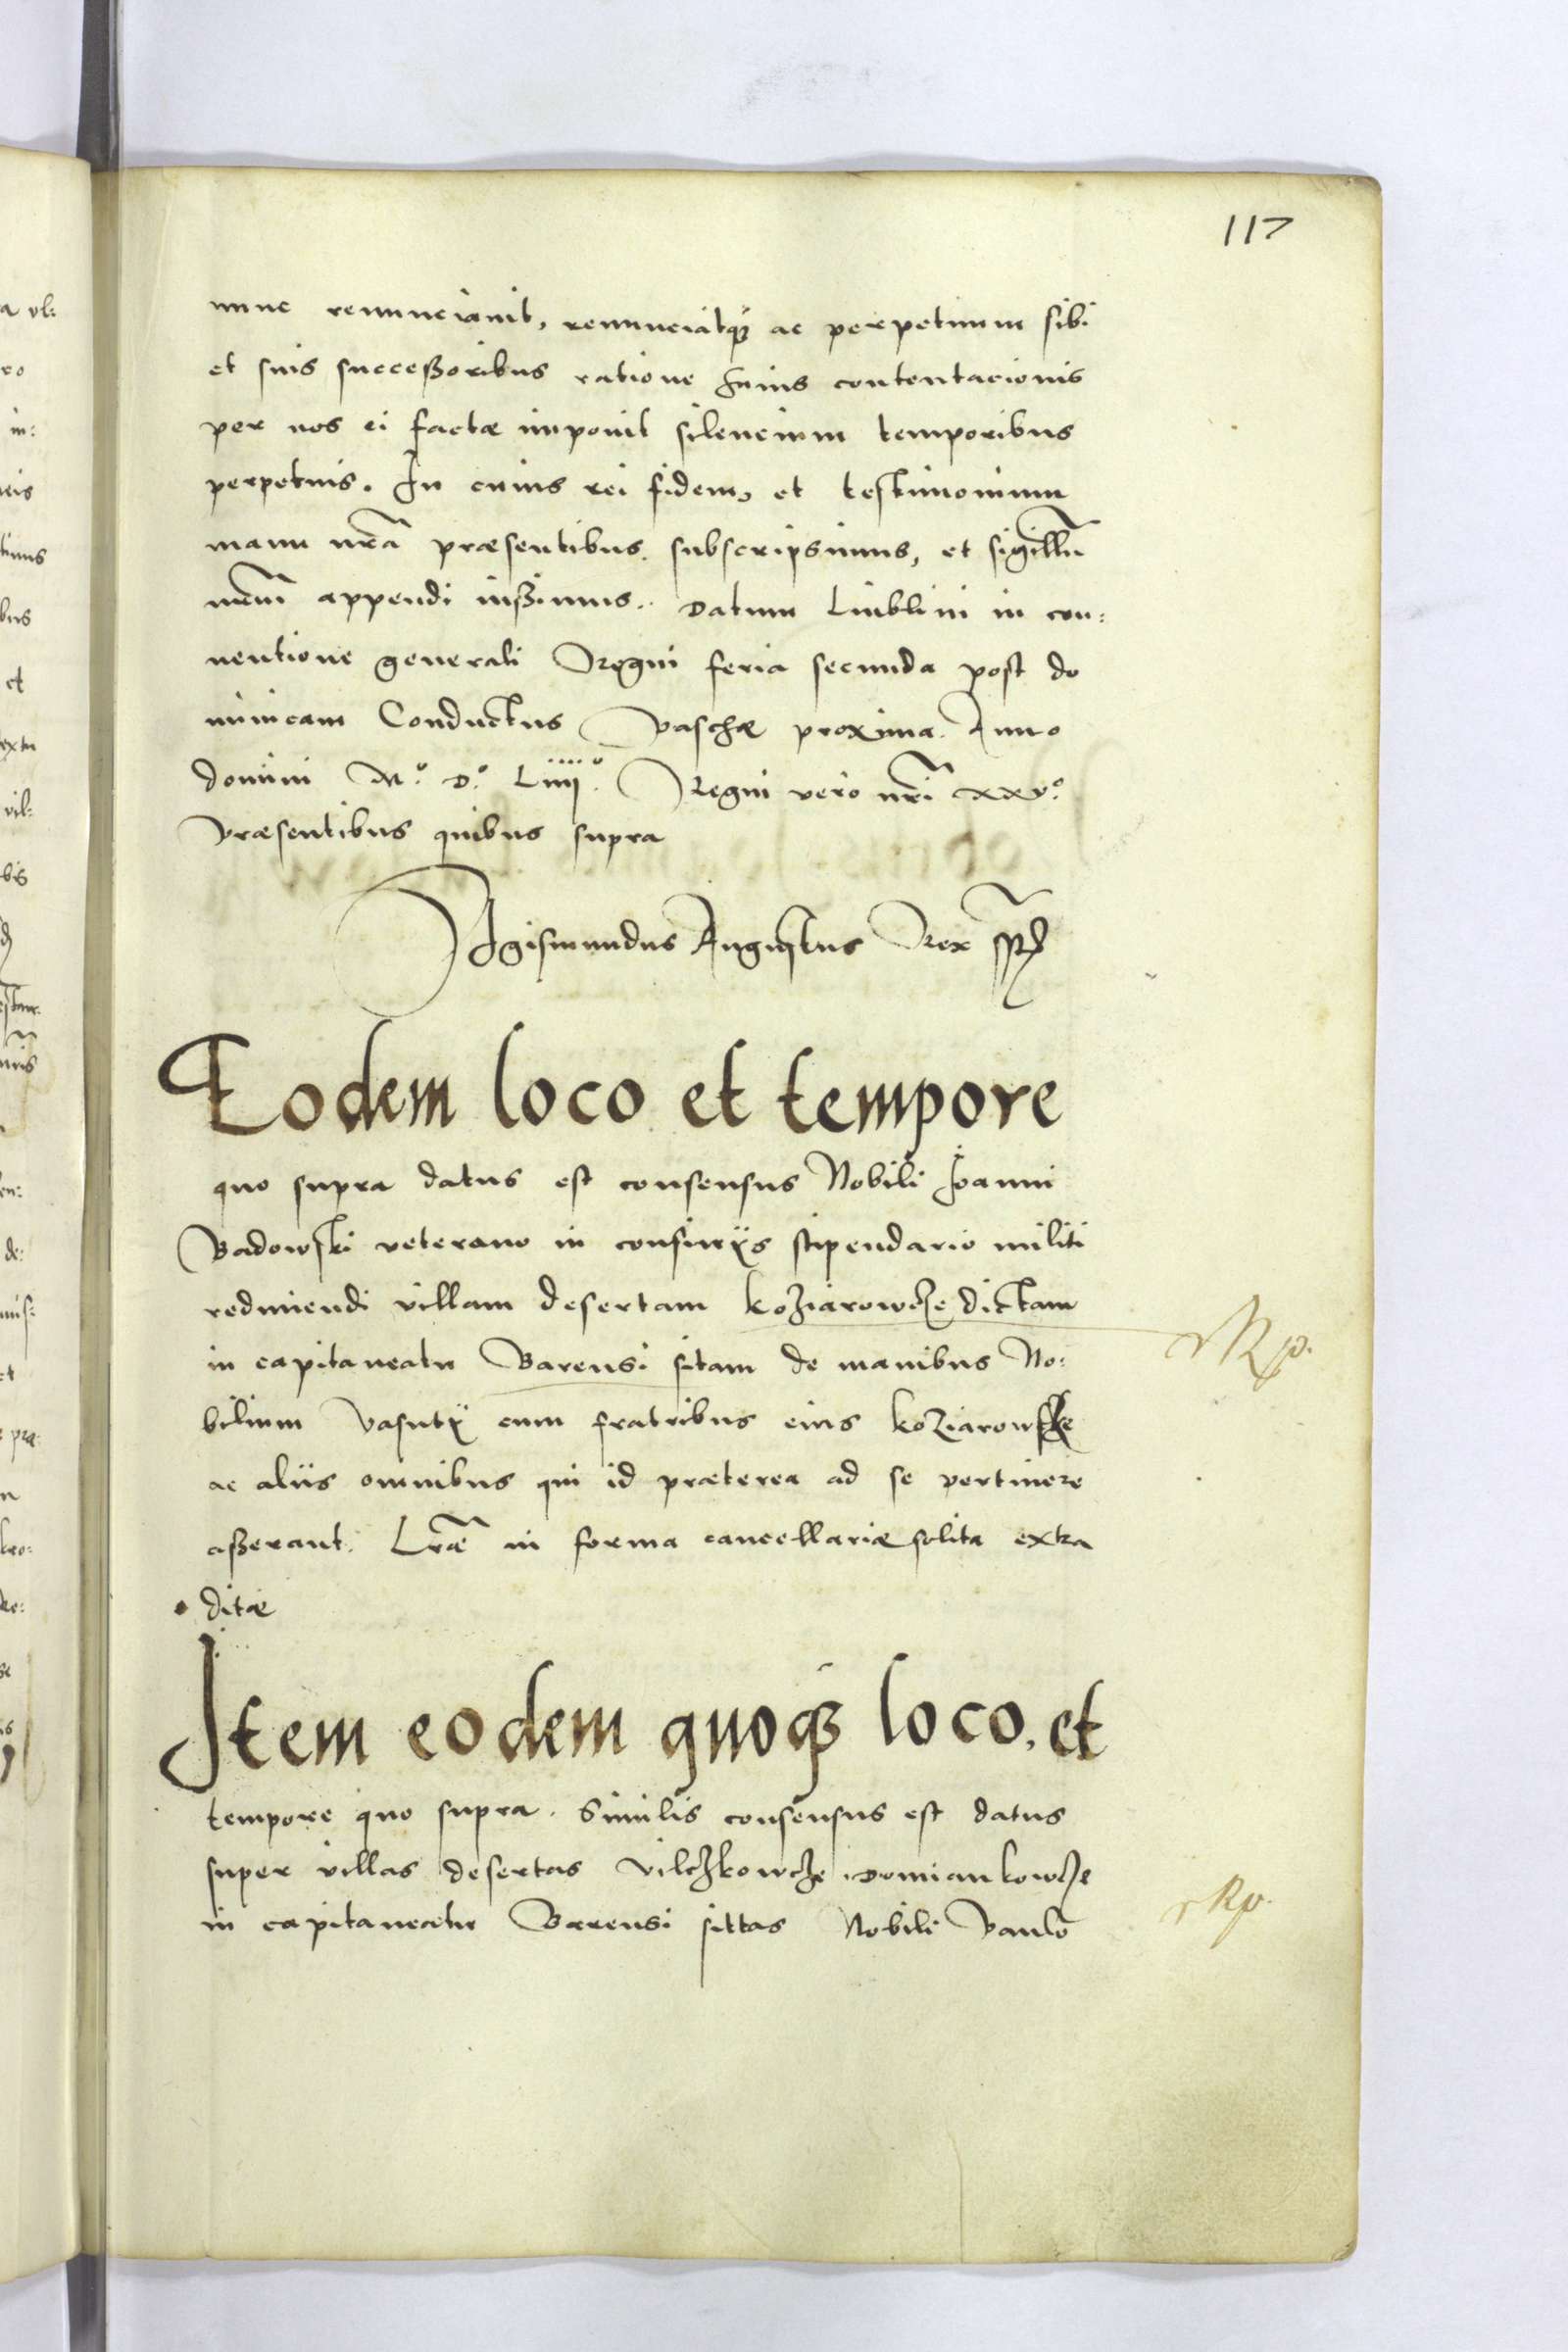 117
nunc renunciavit, renunciatq́ꝫ ac perpetuum sibi
et suis successoribus ratione huius contentacionis
per nos ei factæ imponit silencium temporibus
perpetuis. In cuius rei fidem, et testimonium
manu nrã præsentibus subscripsimus, et sigillũ
nrm̃ appendi iussimus. Datum Liublini in con:
ventione generali Regni feria secunda post do
minicam Conductus Paschæ proxima. Anno
domini Mº. Dº. Liiiiº. Regni vero nrĩ xxvº.
Præsentibus quibus supra
Sigismundus Augustus Rex
Eodem loco et tempore
quo supra datus est consensus Nobili Joanni
Badowski veterano in confinÿs stipendario militi
redimendi villam desertam Koziarowcze dictam
in capitaneatu Barensi sitam de manibus No:
bilium Vasutÿ cum fratribus eius Koziarowske
ac aliis omnibus qui id præterea ad se pertinere
asserant. Lræ̃ in forma cancellariæ solita extra
ditæ
Item eodem quoqꝫ loco, et
tempore quo supra. Similis consensus est datus
super villas desertas Vilczkowcze Domiankowcze
in capitaneatu Barensi sittas Nobili Paulo
Rp.
Rp.